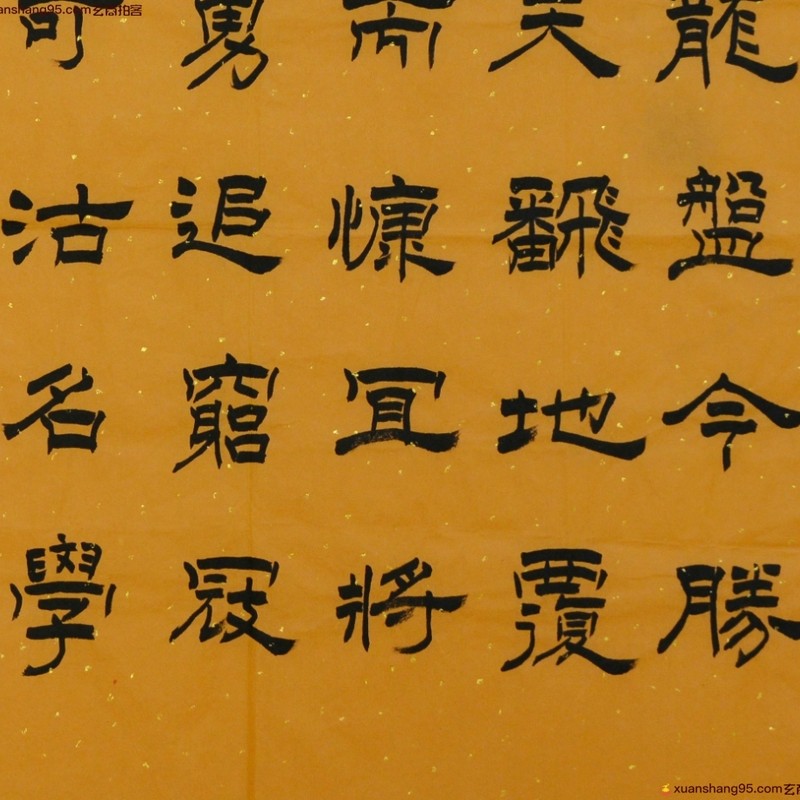 龍盤今勝
天飜地覆
而慷冝將
勇追窮冦
可沽名學
anshang95.com玄商拍客
xuanshang95.com玄